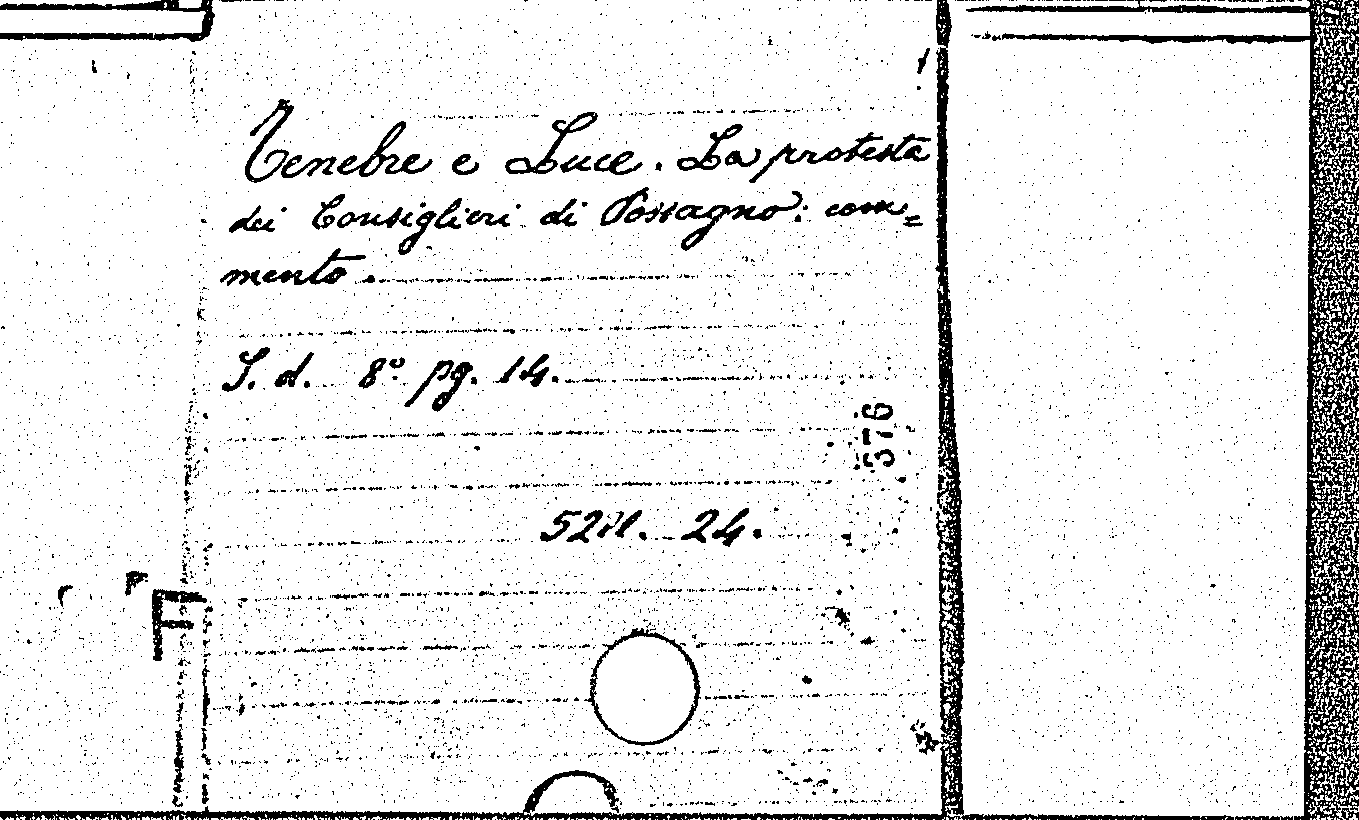 Tenebre e Luce. La protesta
dei Consiglieri di Possagno: com=
mento.
S. d. 8º pg. 14.
576
24.
F